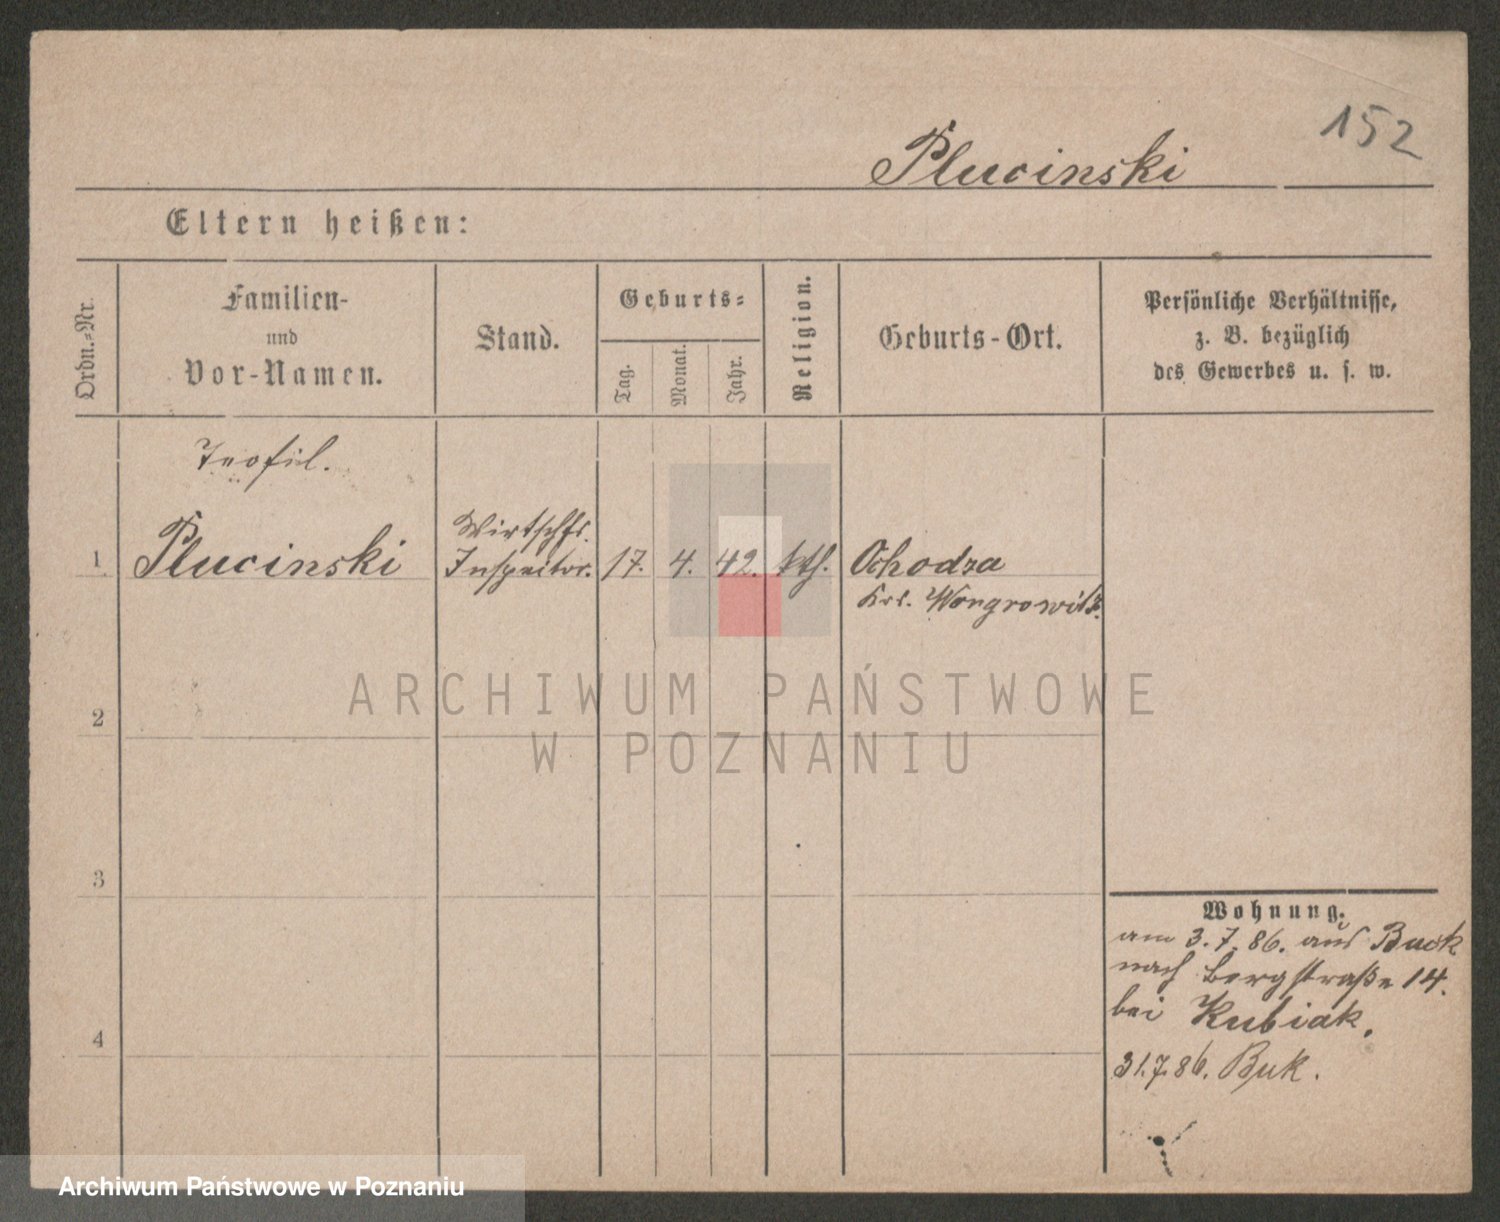 152
Plucinski
Eltern heißen:
Ordn.-Nr.
Familien-
und
Vor-Namen.
Stand.
Geburts-
Tag.
Monat.
Jahr.
Religion.
Geburts-Ort.
Persönliche Verhältnisse,
z. B. bezüglich
des Gewerbes u. s. w.
Teofil.
1 Plucinski
Wirtschfs.
Inspeitor. 17. 4. 42. kth. Ochodza
Krs. Wongrowitz.
ARCHIWUM PAŃSTWOWE
W POZNANIU
2
3
4
Wohnung.
am 3.7.86. aus Buck
nach Bergstraße 14.
bei Kubiak.
31.7.86. Buk.
Archiwum Państwowe w Poznaniu